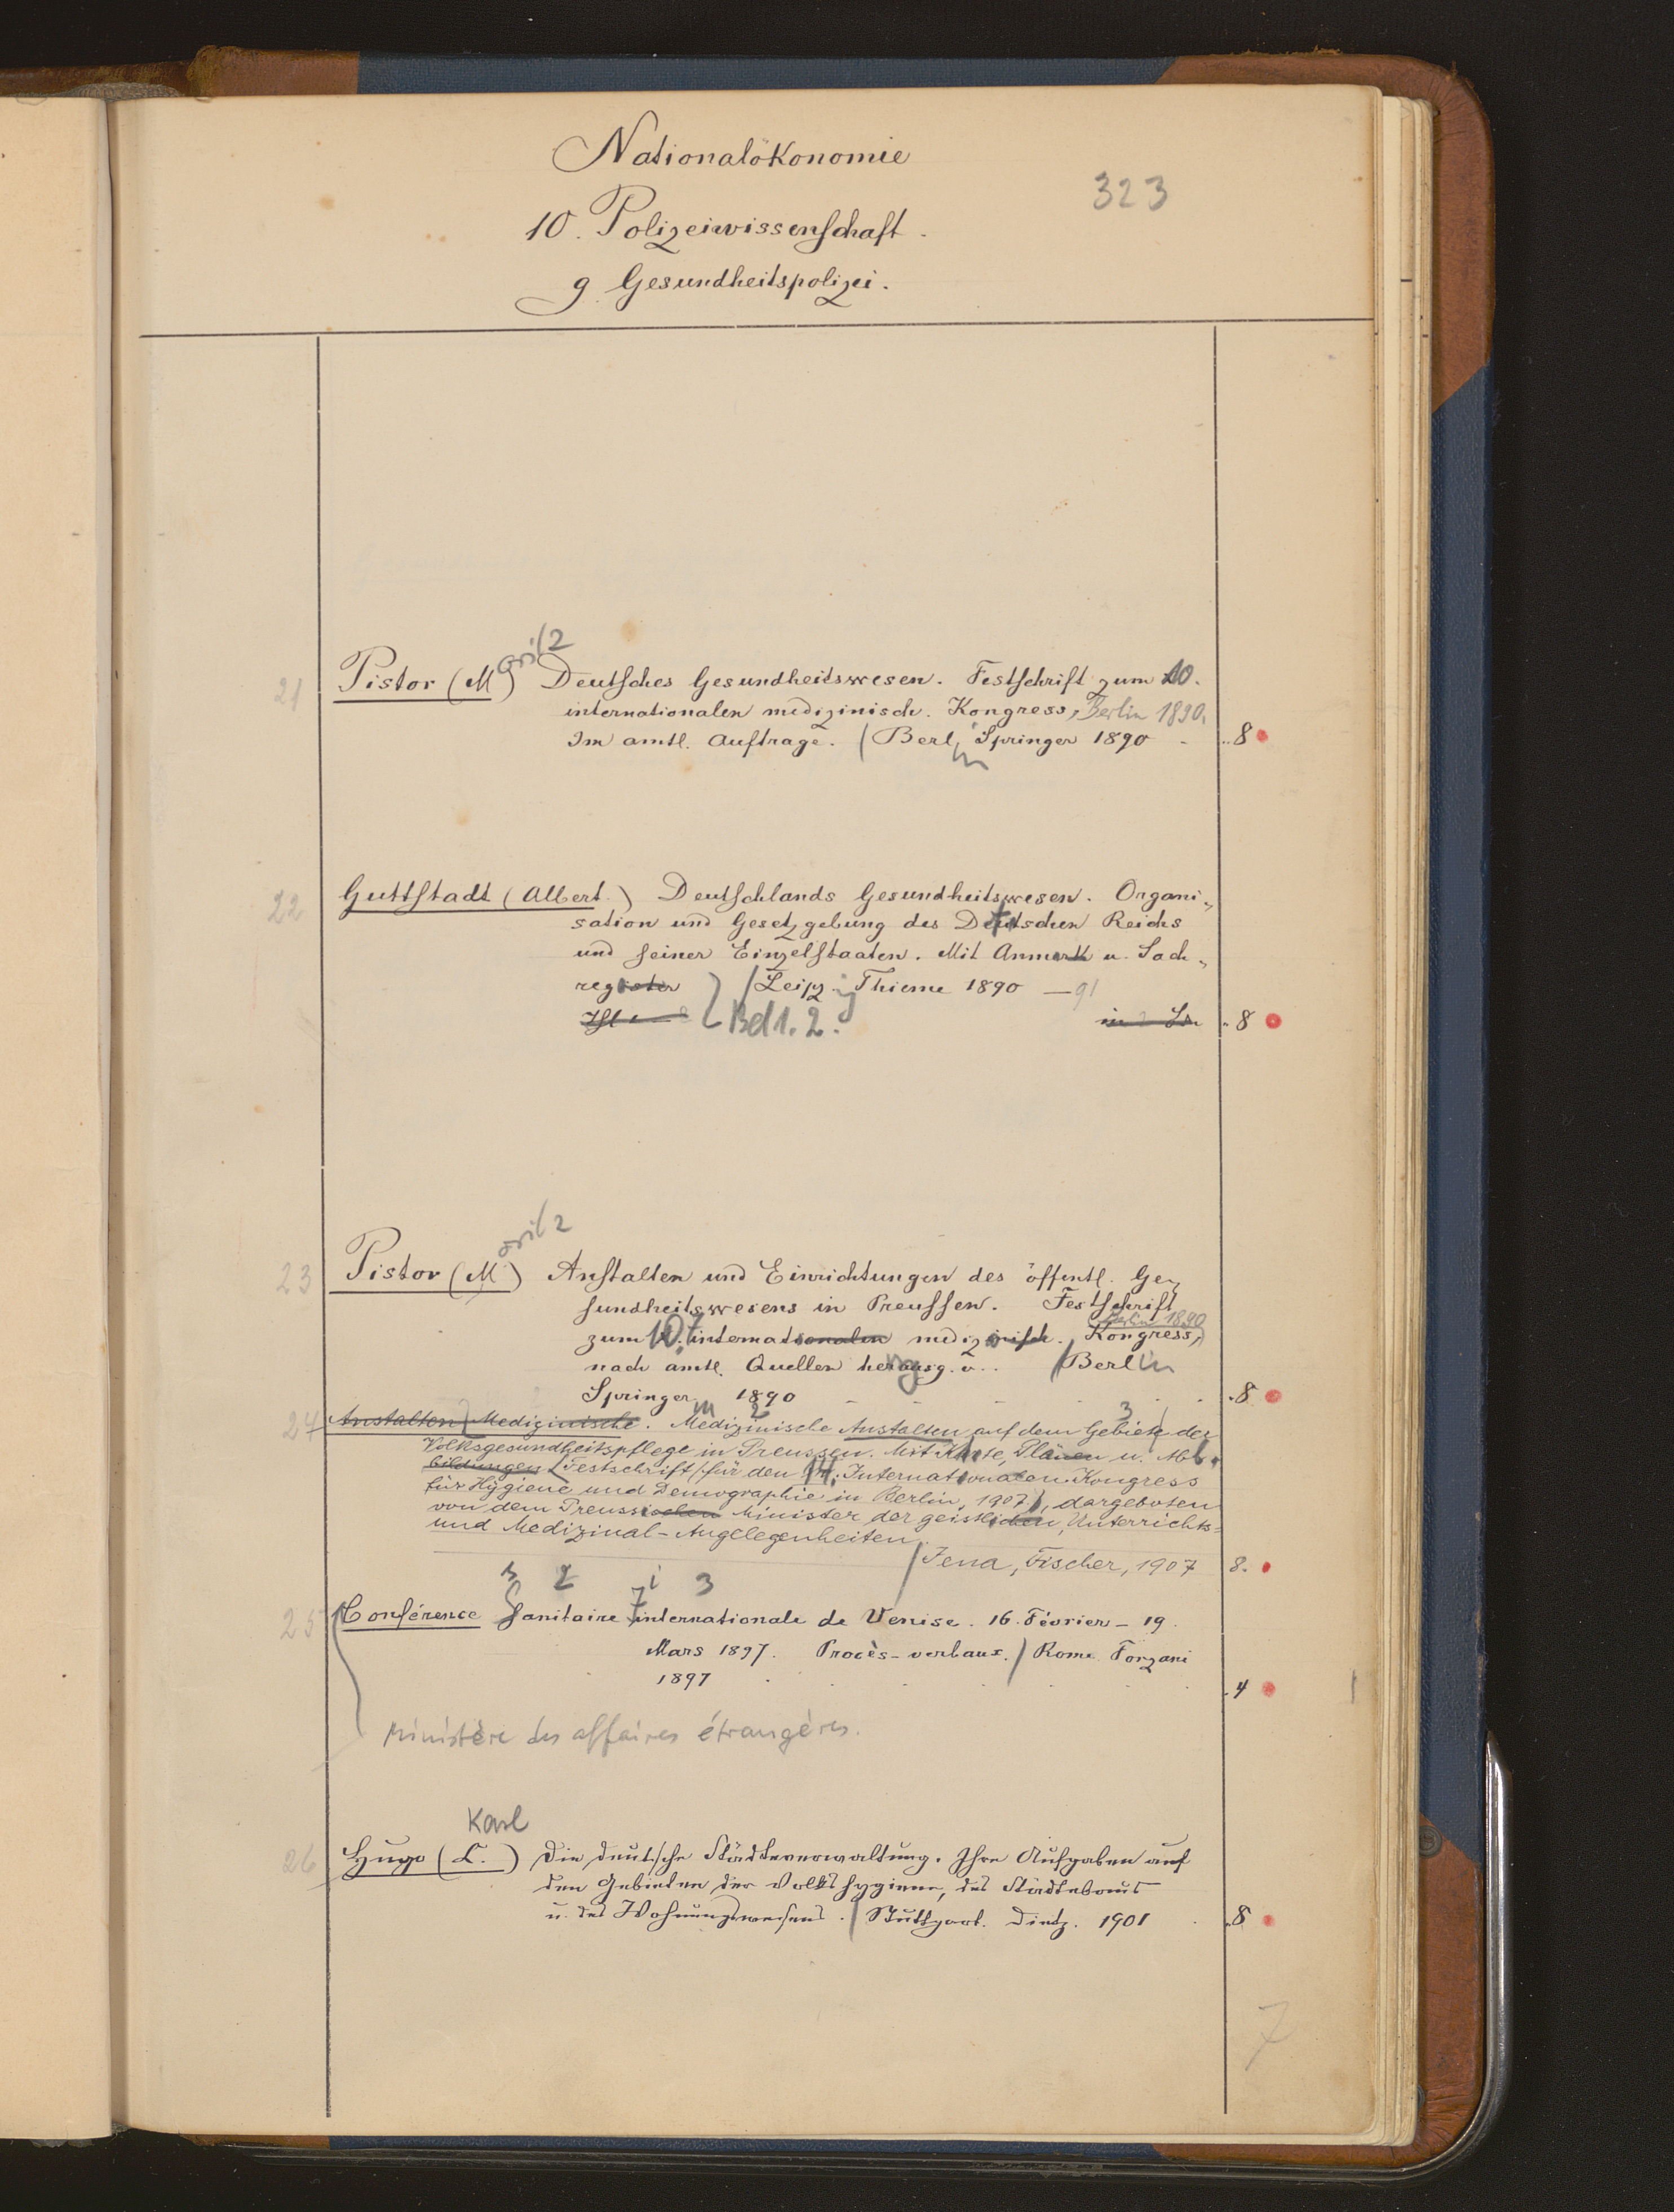 Nationalökonomie
323
10. Polizeiwissenschaft.
g Gesundheitspolizei.
oritz
21 Pistor (M.) Deutsches Gesundheitswesen. Festschrift zum 10.
internationalen medizinisch. Kongress, Berlin 1890.
Im amtl. Auftrage. / Berlin Springer 1890 - 8
22 Guttstadt (Albert.) Deutschlands Gesundheitswesen. Organi-
sation und Gesetzgebung des Deutschen Reichs
und seiner Einzelstaaten. Mit Anmerk u. Sach-
register / Leipzig Thieme 1890 - 91
Bd 1. 2. in 8
oritz
23 Pistor (M.) Anstalten und Einrichtungen des öffentl. Ge-
sundheitswesens in Preussen. Festschrift
Berlin 1890
zum 10. internationalen medizinisch. Kongress,
nach amtl. Quellen herausg. v. / Berlin
Springer 1890 8
m 2 3
24 Anstalten, Medizinische. Medizinische Anstalten auf dem Gebiete der
Volksgesundheitspflege in Preussen. Mit Karte, Plänen u. Abb.
bildungen Festschrift für den 14. Internationalen Kongress
für Hygiene und Demographie in Berlin, 1907, dargeboten
von dem Preussischen Minister der geistlichen, Unterrichts-
und Medizinal-Angelegenheiten.
/ Jena, Fischer, 1907 8.
s 2 i 3
25 Conférence sanitaire internationale de Venise. 16. Février - 19.
Mars 1897. Procès-verbaux. / Rome Forzani
1897 4
Ministère des affaires étrangères.
Karl
26 Hugo (C.) Die deutsche Städteverwaltung. Ihre Aufgaben auf
den Gebieten der Volkshygiene, des Städtebaus
u. des Wohnungswesens. / Stuttgart. Dietz. 1901 8
7